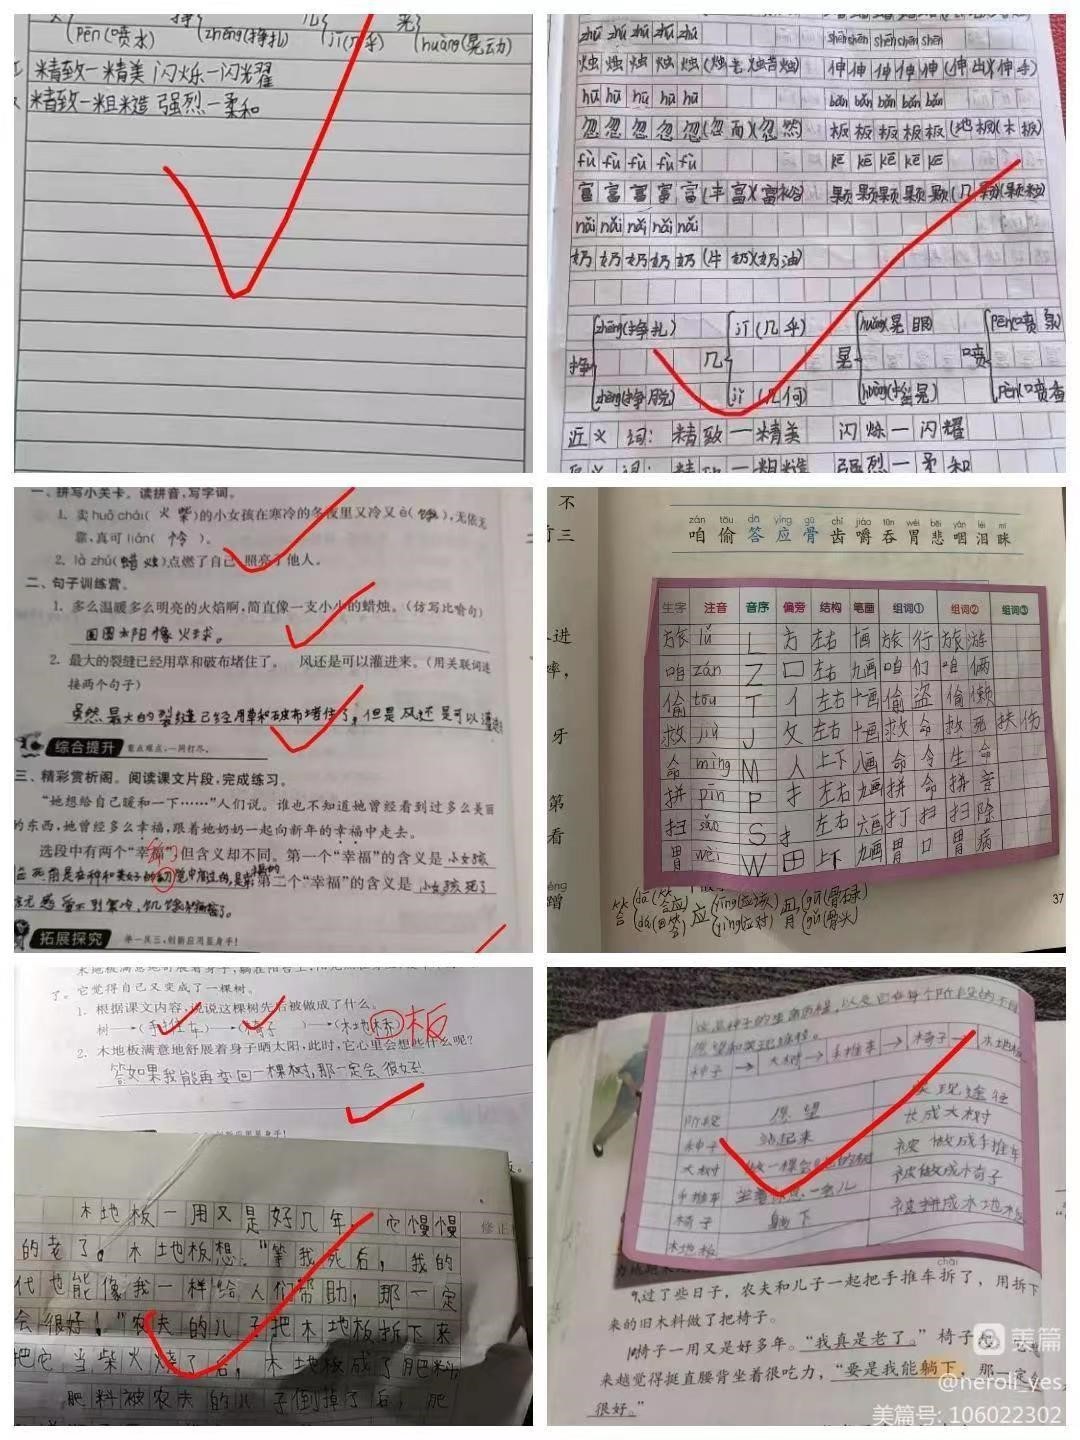 (pēn(喷水) (zhēng(挣扎) (jī(几乎) (huàng(晃动)
精致一精美 闪烁一闪耀
精致一粗糙 强烈一柔和
zhú zhú zhú zhú zhú
shēn shēn shēn shēn
烛烛烛烛烛(烛光 伸伸伸伸伸(伸出)(伸手)
hū hū hū hū hū bǎn bǎn bǎn bǎn bǎn
忽忽忽忽忽(忽而)(忽然) 板板板板板(地板)(木板)
fù fù fù fù fù kē kē kē kē kē
富富富富富(丰富)(富裕) 颗颗颗颗颗(几颗)(颗粒)
nǎi nǎi nǎi nǎi nǎi
奶奶奶奶奶(牛奶)(奶油)
zhēng(挣扎) jī(几乎) huǎng(晃眼 pēn(喷泉)
挣 几 晃 喷
zhèng(挣脱) jǐ(几何) huàng(摇晃) pèn(喷香
近义词:精致一精美 闪烁一闪耀
反义词:精致一粗糙 强烈一柔和
一、拼写小关卡。读拼音,写字词。
1. 卖huǒ chái(火柴)的小女孩在寒冷的冬夜里又冷又è(饿),无依无
靠,真可lián(怜)。
2. là zhú(蜡烛)点燃了自己,照亮了他人。
二、句子训练营。
1. 多么温暖多么明亮的火焰啊,简直像一支小小的蜡烛。(仿写比喻句)
圆圆太阳像火球。
2. 最大的裂缝已经用草和破布堵住了。 风还是可以灌进来。(用关联词连
接两个句子)
虽然最大的裂缝已经用草和破布堵住了,但是风还是可以灌进
综合提升 重点难点,一网打尽。
三、精彩赏析阁。阅读课文片段,完成练习。
“她想给自己暖和一下……”人们说。谁也不知道她曾经看到过多么美丽
的东西,她曾经多么幸福,跟着她奶奶一起向新年的幸福中走去。
选段中有两个“幸福”但含义却不同。第一个“幸福”的含义是 小女孩
第二个“幸福”的含义是 小女孩死了
拓展探究 举一反三,创新应用显身手!
不
行三
进
率,
牙
第
看
蹭
zán tōu dā yìng gǔ chǐ jiáo tūn wèi bēi yàn lèi mī
咱 偷 答 应 骨 齿 嚼 吞 胃 悲 咽 泪 眯
生字 注音 音序 偏旁 结构 笔画 组词① 组词② 组词③
旅 lǚ L 方 左右 十画 旅行 旅游
咱 zán Z 口 左右 九画 咱们 咱俩
偷 tōu T 亻 左右 十一画 偷盗 偷懒
救 jiù J 攵 左右 十一画 救命 救死扶伤
命 mìng M 人 上下 八画 命令 生命
拼 pīn P 扌 左右 九画 拼命 拼音
扫 sǎo S 扌 左右 六画 打扫 扫除
胃 wèi W 田 上下 九画 胃口 胃病
答 (dā(答应) 应 (yīng(应该) 骨 (gū(骨碌)
(dá(回答) (yìng(应对) (gǔ(骨头)
37
木地板满意地舒展着身子,躺在阳台上,
了。它觉得自己又变成了一棵树。
1. 根据课文内容,说说这棵树先后被做成了什么。
树→(手推车)→(椅子)→(木地板) 板
2. 木地板满意地舒展着身子晒太阳,此时,它心里会想些什么呢?
答如果我能再变回一棵树,那一定会很好
木地板一用又是好几年,它慢慢
修正
的老了。木地板想:“等我死后,我的
代也能像我一样给人们帮助,那一定
会很好!”农夫的儿子把木地板拆下来
把它当柴火烧了后,木地板成了肥料,
肥料被农夫的儿子倒掉了后,肥
种子→大树→手推车→椅子→木地板
阶段 愿望 实现途径
种子 站起来 长成大树
大树 做一棵会 的树 被做成手推车
手推车 坐着休息一会儿 被做成椅子
椅子 躺下 被拼成木地板
木地板
chāi
9过了些日子,农夫和儿子一起把手推车拆了,用拆下
来的旧木料做了把椅子。
10椅子一用又是好多年。“我真是老了。”椅子想,
来越觉得挺直腰背坐着很吃力,“要是我能躺下,那一定
很好。”
美篇
@neroli_yes
美篇号: 106022302